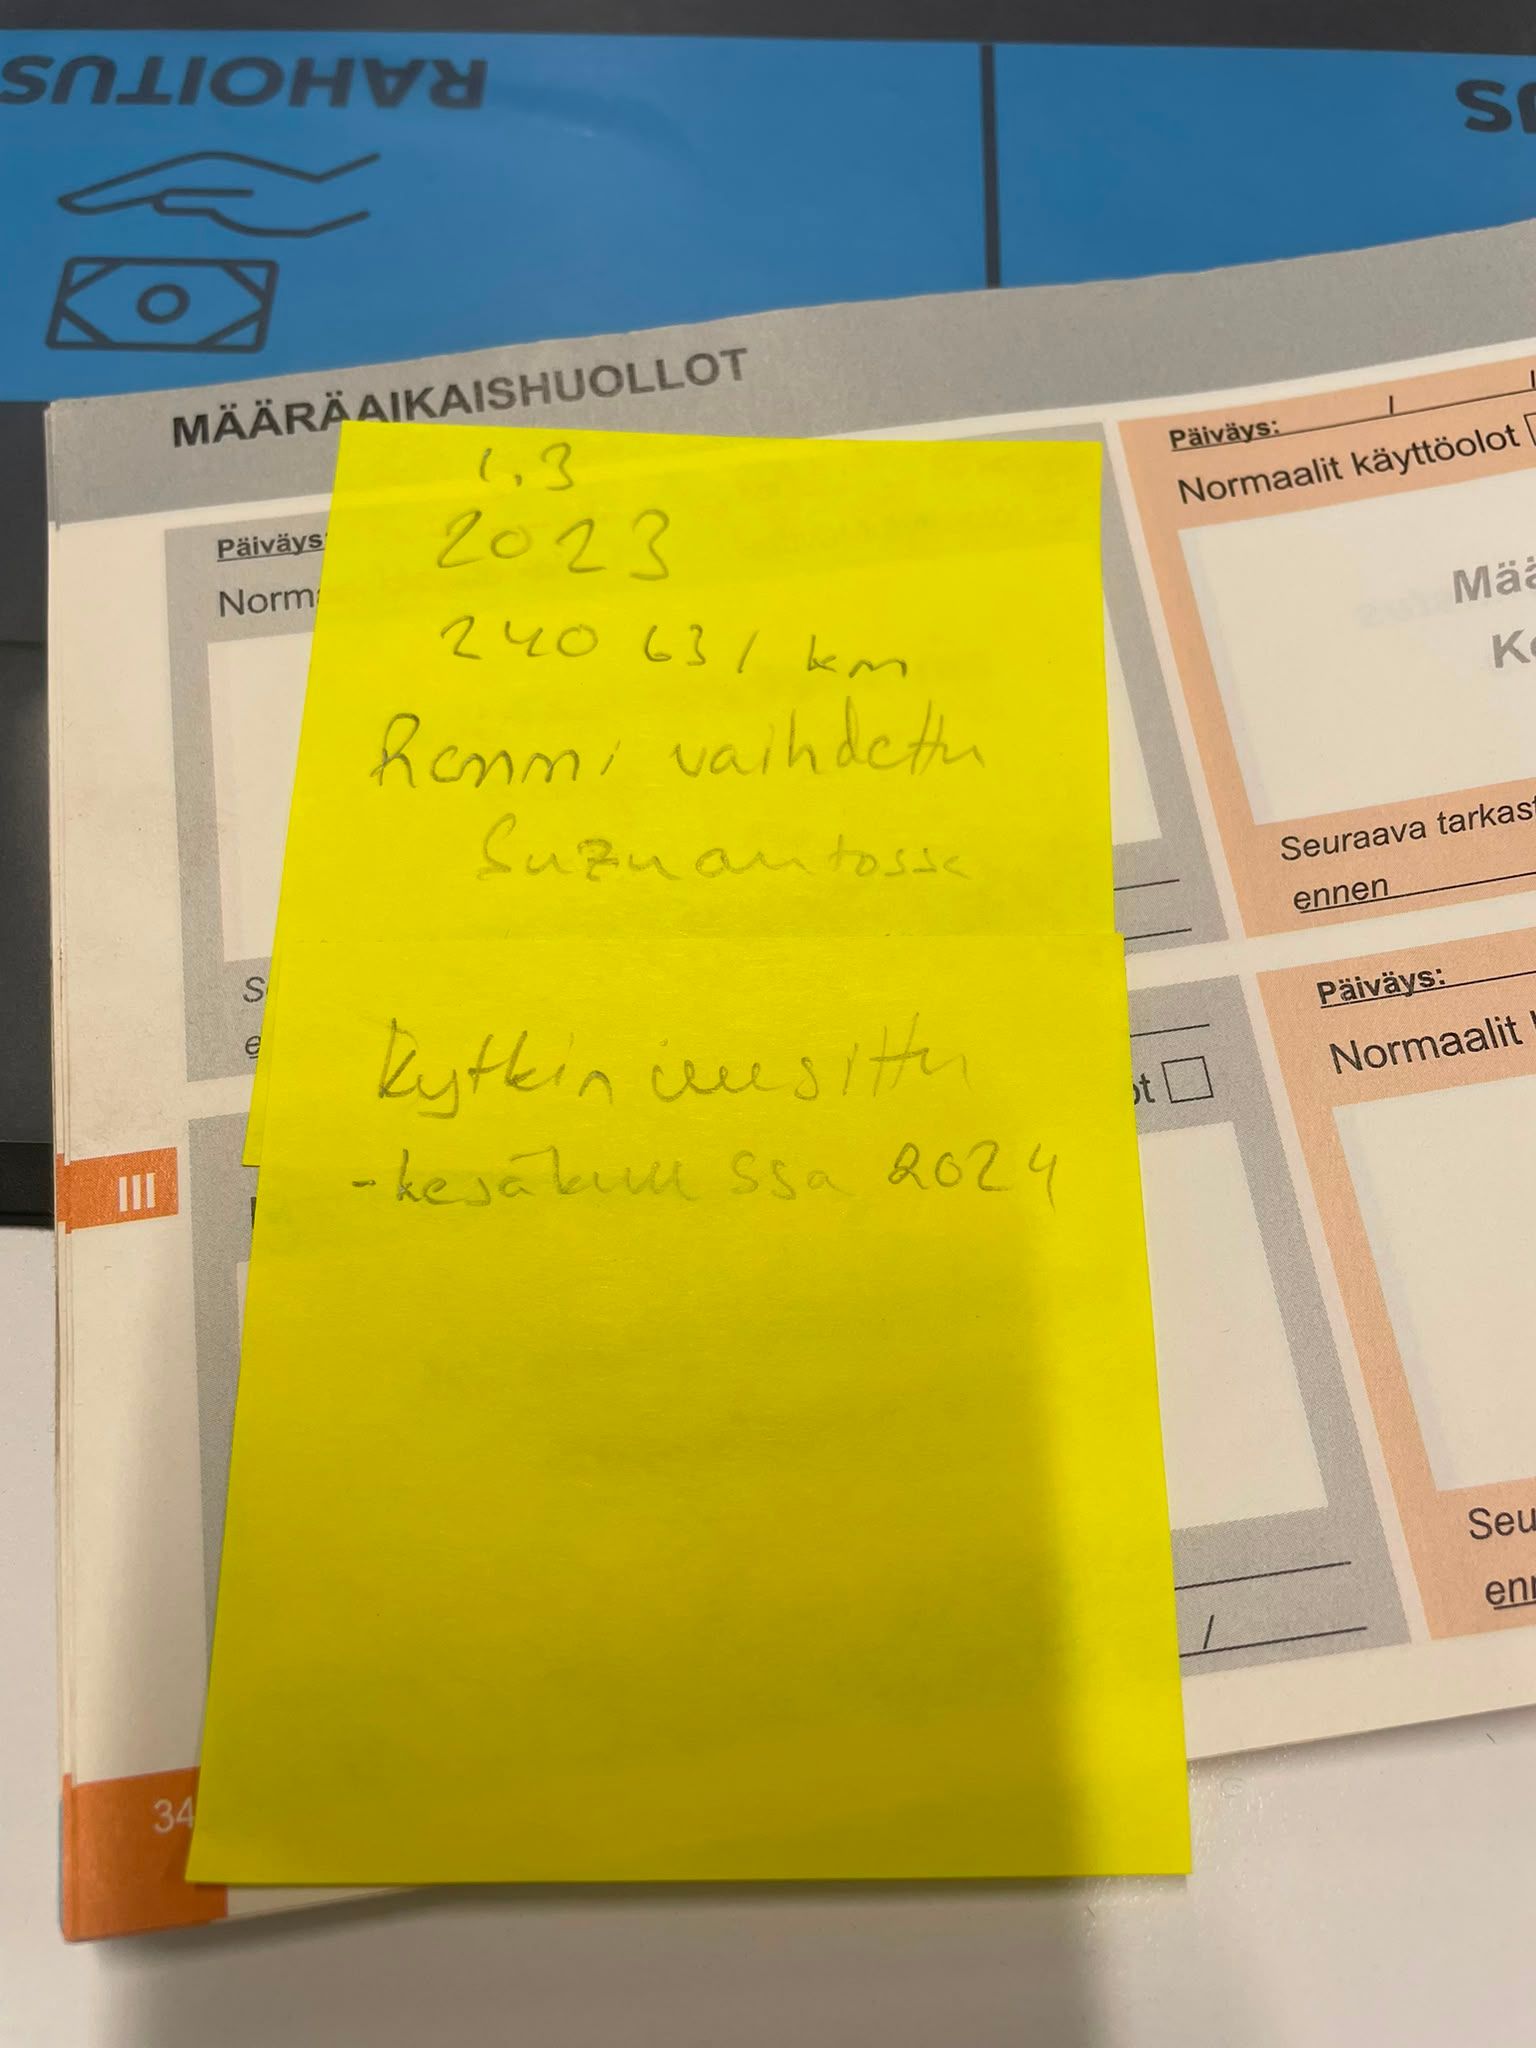 RAHOITUS
US
MÄÄRÄAIKAISHUOLLOT
Päiväys:
Norma
1.3
2023
240 631 km
Remmi vaihdettu
Suzuautossa
Kytkin uusittu
- kesäkuussa 2024
Päiväys: / /
Normaalit käyttöolot
Mää
Ke
Seuraava tarkast
ennen
S
e
ot
III
/
34
Päiväys:
Normaalit k
Seu
enn